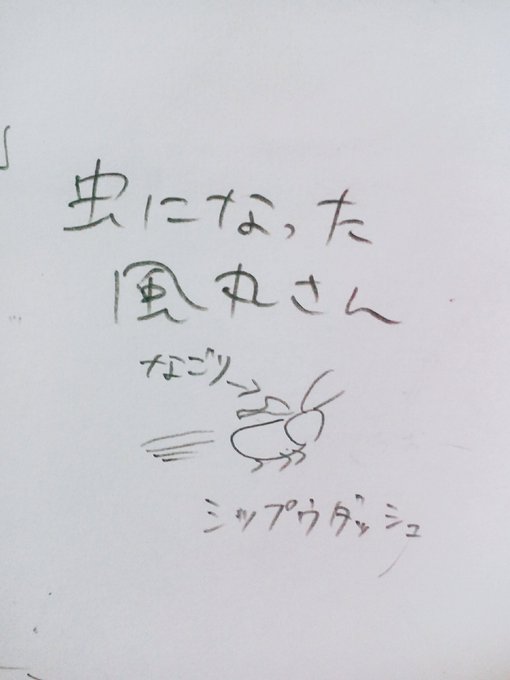 虫になった
風丸さん
なごり→
シップウダッシュ